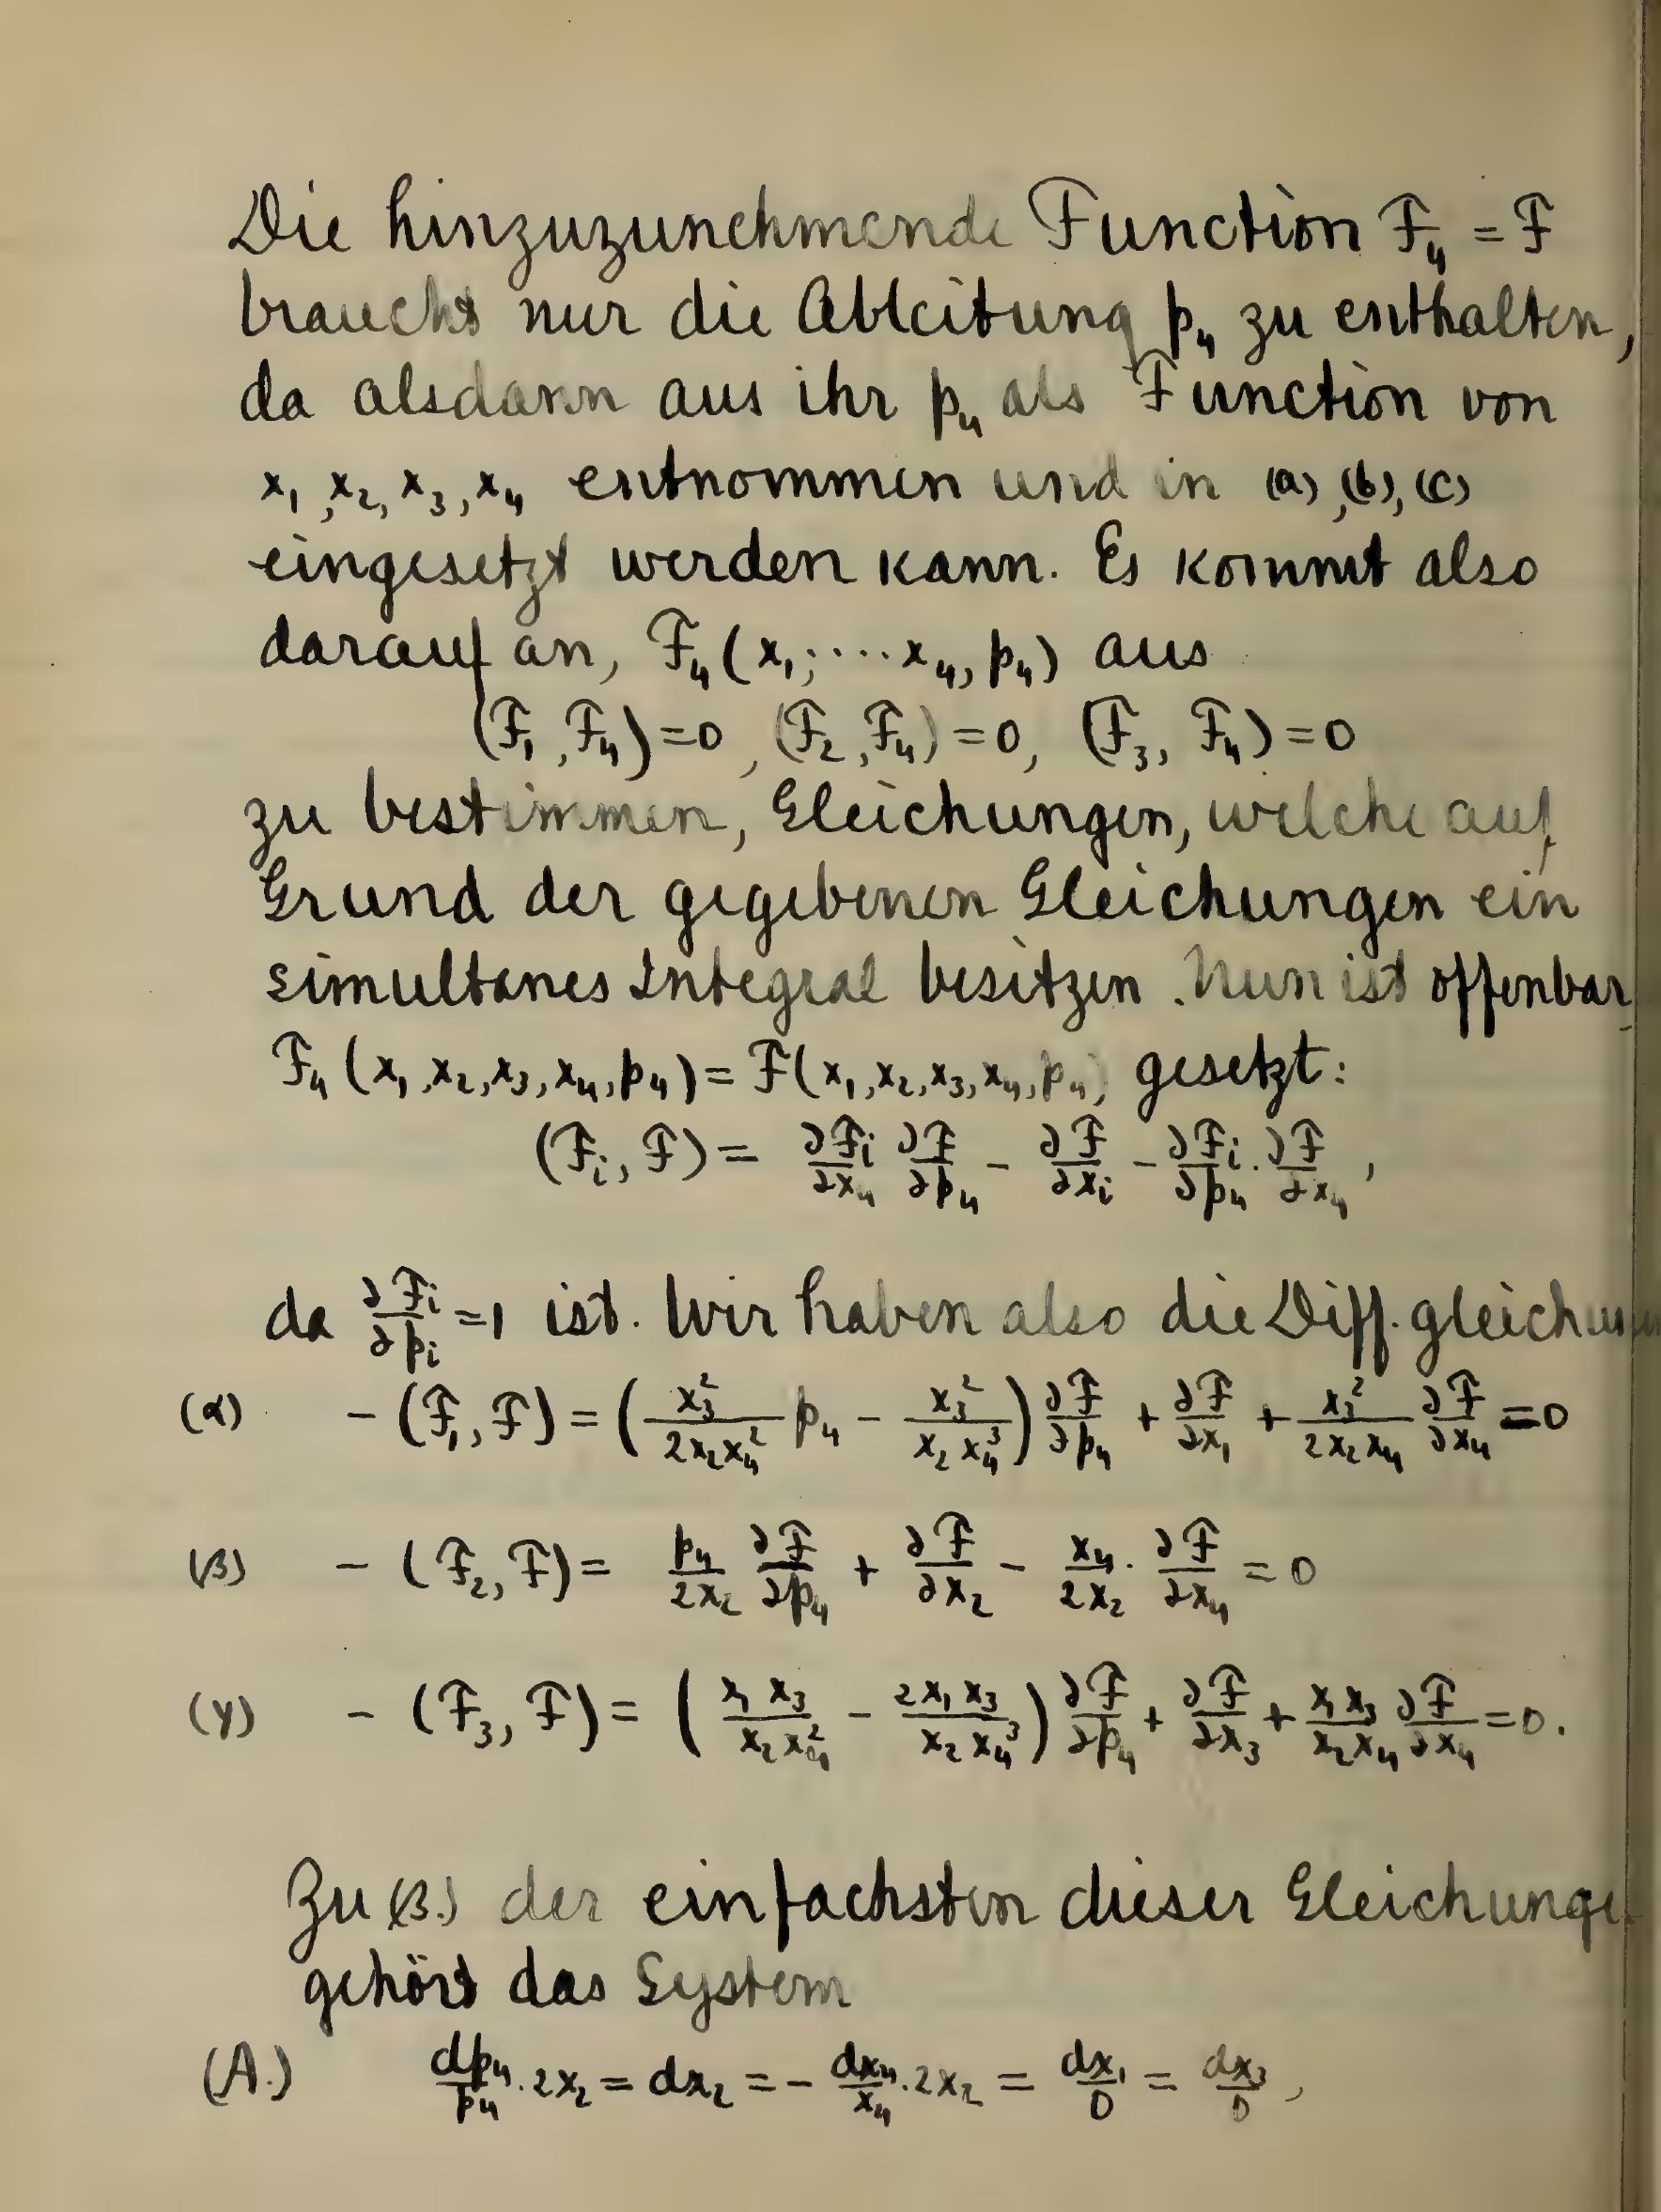 Die hinzuzunehmende Function F₄ = F
braucht nur die Ableitung p₄ zu enthalten,
da alsdann aus ihr p₄ als Function von
x₁, x₂, x₃, x₄ entnommen und in (a), (b), (c)
eingesetzt werden kann. Es kommt also
darauf an, F₄(x₁; ···· x₄, p₄) aus
(F₁, F₄) = 0, (F₂, F₄) = 0, (F₃, F₄) = 0
zu bestimmen, Gleichungen, welche auf
Grund der gegebenen Gleichungen ein
simultanes Integral besitzen. Nun ist offenbar
F₄(x₁, x₂, x₃, x₄, p₄) = F(x₁, x₂, x₃, x₄, p₄) gesetzt:
(Fᵢ, F) = ∂Fᵢ/∂x₄ ∂F/∂p₄ − ∂F/∂xᵢ − ∂Fᵢ/∂p₄ · ∂F/∂x₄,
da ∂Fᵢ/∂pᵢ = 1 ist. Wir haben also die Diff. gleichun
(α) − (F₁, F) = (x₃²/2x₂x₄² p₄ − x₃²/x₂x₄³) ∂F/∂p₄ + ∂F/∂x₁ + x₃²/2x₂x₄ ∂F/∂x₄ = 0
(β) − (F₂, F) = p₄/2x₂ ∂F/∂p₄ + ∂F/∂x₂ − x₄/2x₂ · ∂F/∂x₄ = 0
(γ) − (F₃, F) = (x₁x₃/x₂x₄² − 2x₁x₃/x₂x₄³) ∂F/∂p₄ + ∂F/∂x₃ + x₁x₃/x₂x₄ ∂F/∂x₄ = 0.
Zu (β.) der einfachsten dieser Gleichunge
gehört das System
(A.) dp₄/p₄ · 2x₂ = dx₂ = − dx₄/x₄ · 2x₂ = dx₁/0 = dx₃/0,